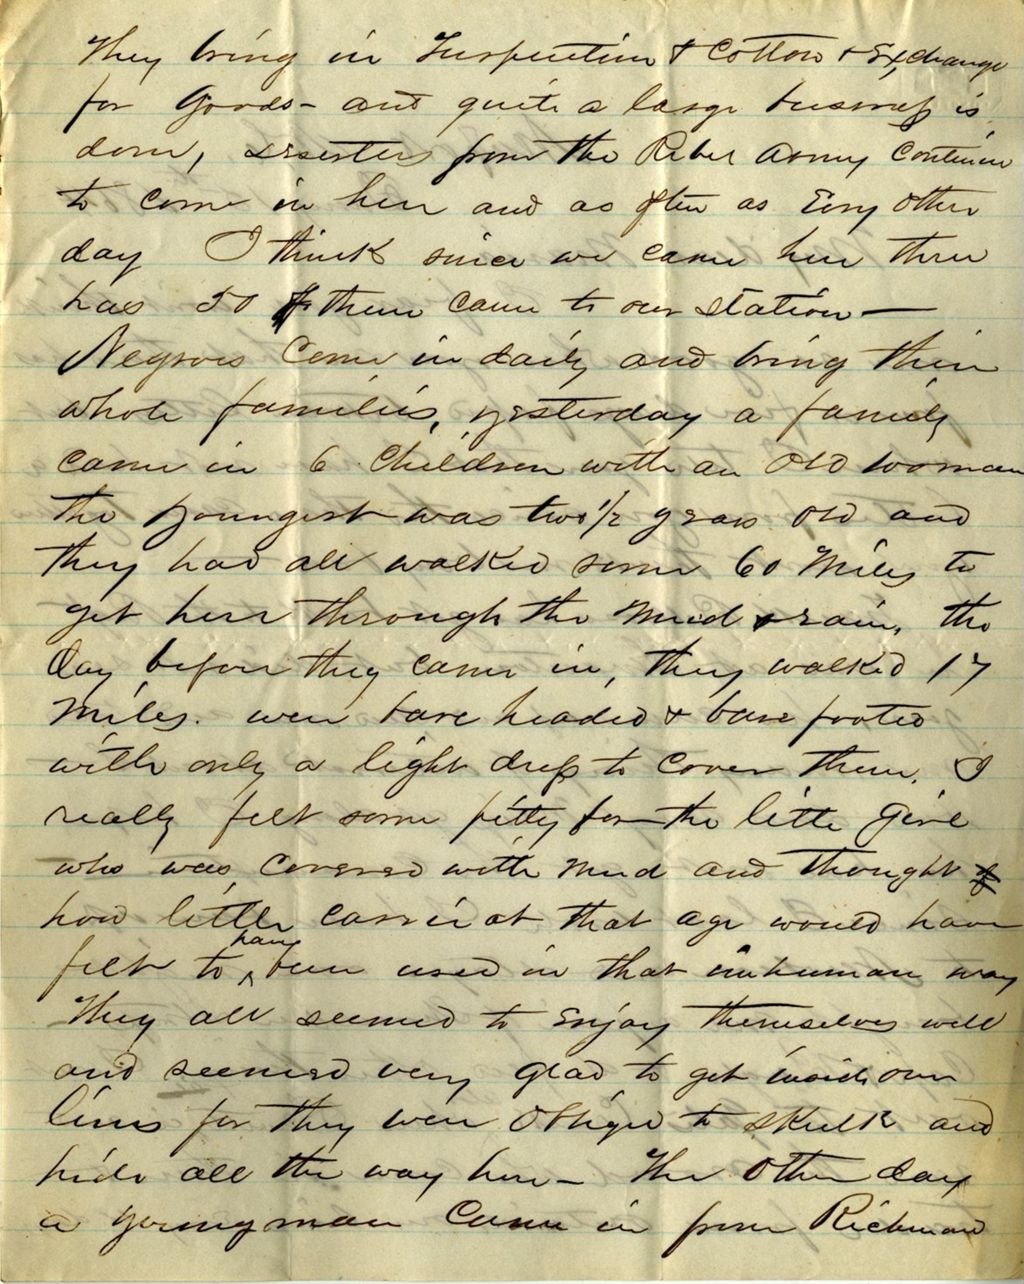 They bring in Turpentine & Cotton & Exchange
for Goods - and quite a large business is
done, deserters from the Reber Army continue
to come in here and as often as Evry other
day I think since we came here there
has 50 of them came to our station —
Negroes Come in daily and bring their
whole families, yesterday a family
came in 6 Children with an Old woman
the youngest was two 1/2 years old and
they had all walked some 60 Miles to
get here through the Mud & rain, the
day before they came in, they walked 17
Miles. were bare headed & bare footed
with only a light dress to cover them. I
really felt some pitty for the little Girl
who was covered with mud and thought
how little Carrie at that age would have
felt to have been used in that inhuman way
They all seemed to Enjoy themselves well
and seemed very glad to get inside our
lines for they were Obliged to skulk and
hide all the way here - The Other day
a young man Came in from Richmond